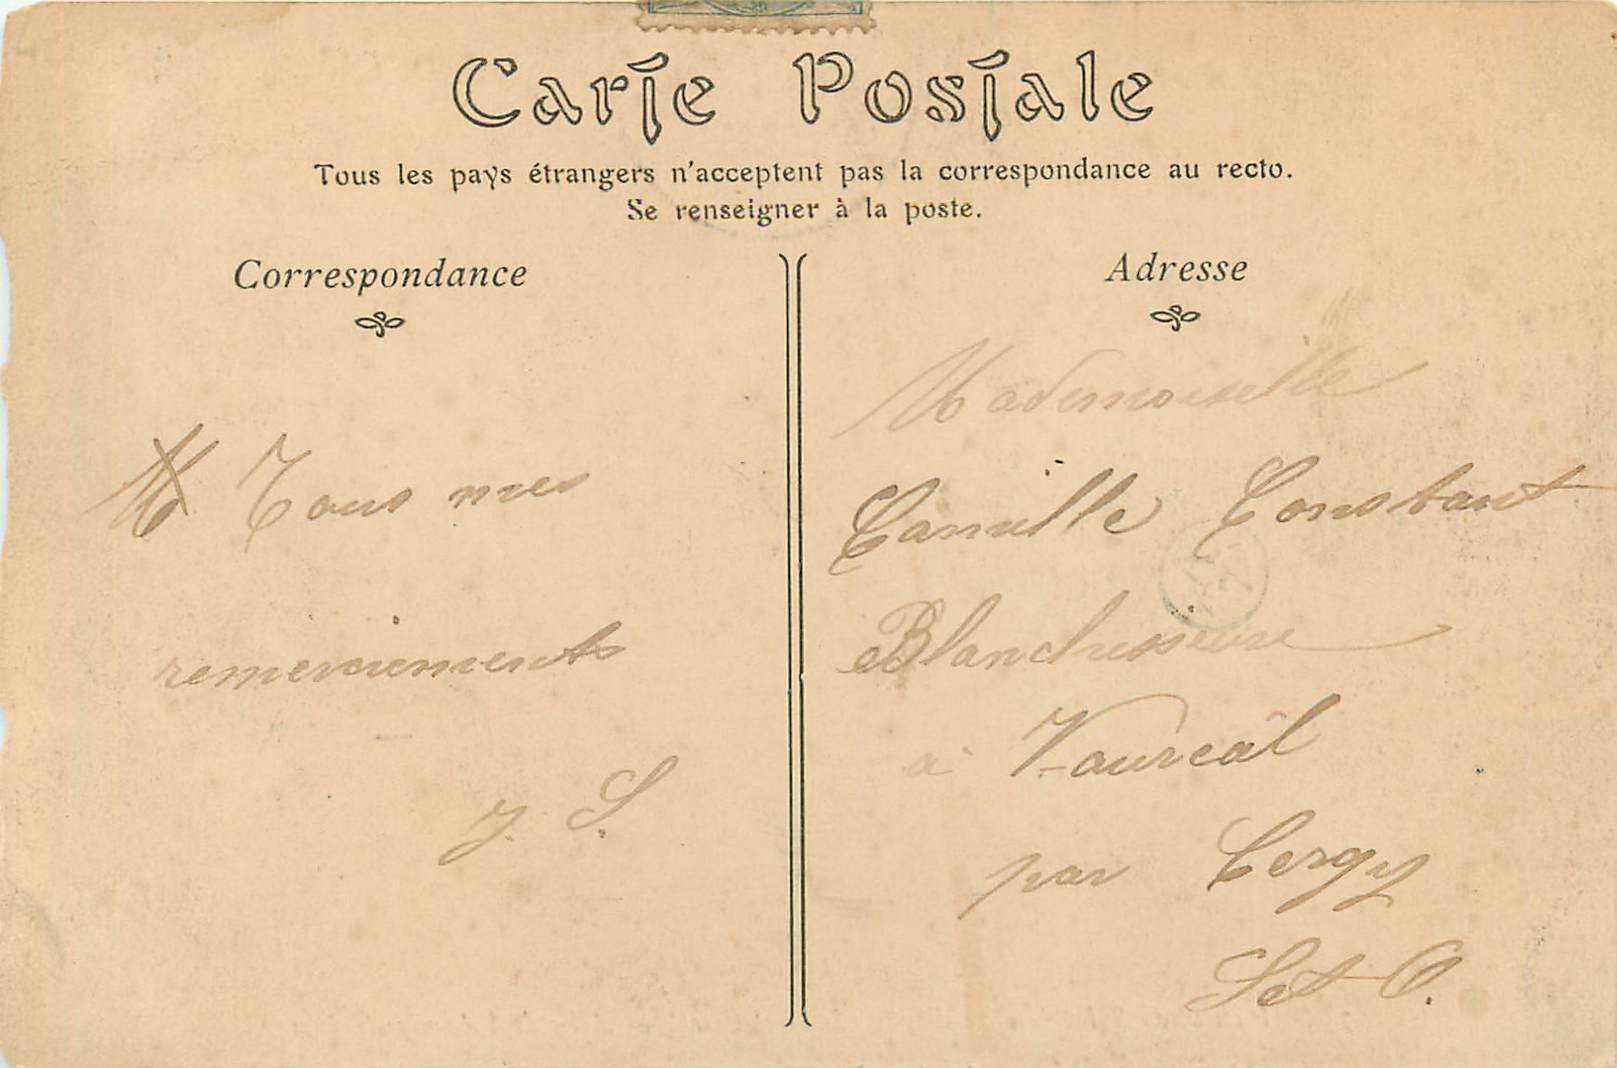 Carte Postale
Tous les pays étrangers n'acceptent pas la correspondance au recto.
Se renseigner à la poste.
Correspondance
Tous mes
remerciements
J. S.
Adresse
Mademoiselle
Camille Constant
Blanchisseuse
à Vauréal
par Cergy
S et O.